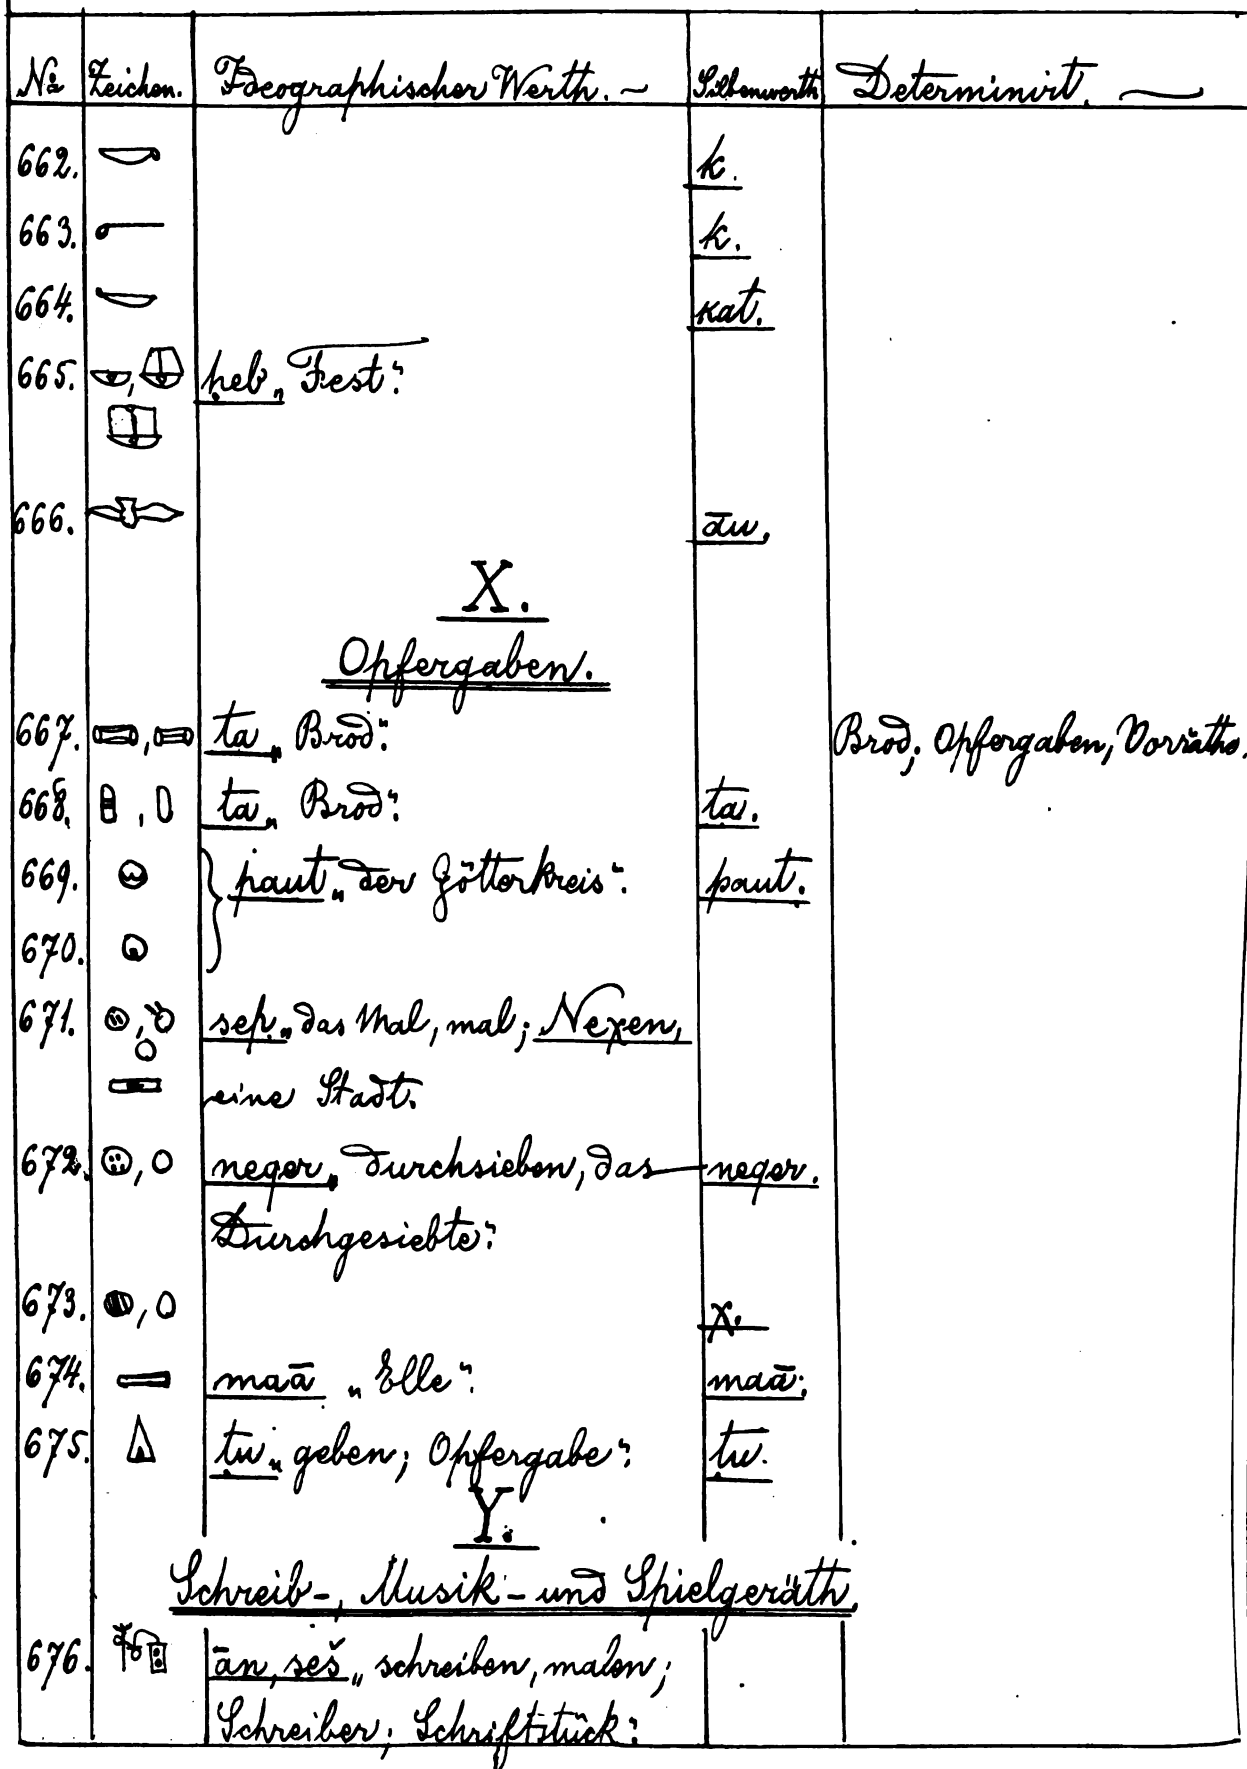 No Zeichen. Ideographischer Werth. Silbenwerth Determinirt.
662. k.
663. k.
664. kat.
665. ḥeb „Fest“.
666. āu.
X.
Opfergaben.
667. ta „Brod“. Brod, Opfergaben, Vorräthe.
668. ta „Brod“. ta.
669. paut „der Götterkreis“. paut.
670.
671. sep „das Mal, mal; Neχen,
eine Stadt.
672. neqer „durchsieben, das neqer.
Durchgesiebte“.
673. χ.
674. maā „Elle“. maā.
675. ṭu „geben; Opfergabe“. ṭu.
Y.
Schreib-, Musik- und Spielgeräth.
676. ān, seš „schreiben, malen;
Schreiber; Schriftstück“.